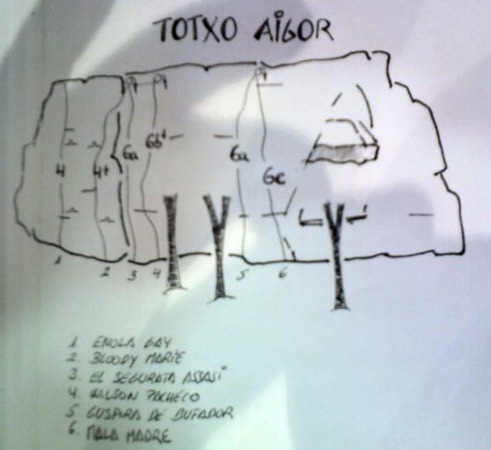 TOTXO AIGOR
4 4+ 6a 6b+ 6a 6c
1 2 3 4 5 6
1. ENOLA GAY
2. BLOODY MARIE
3. EL SEGURATA ASSASÍ
4. WILSON PACHECO
5 GUSPIRA DE BUFADOR
6. MALA MADRE